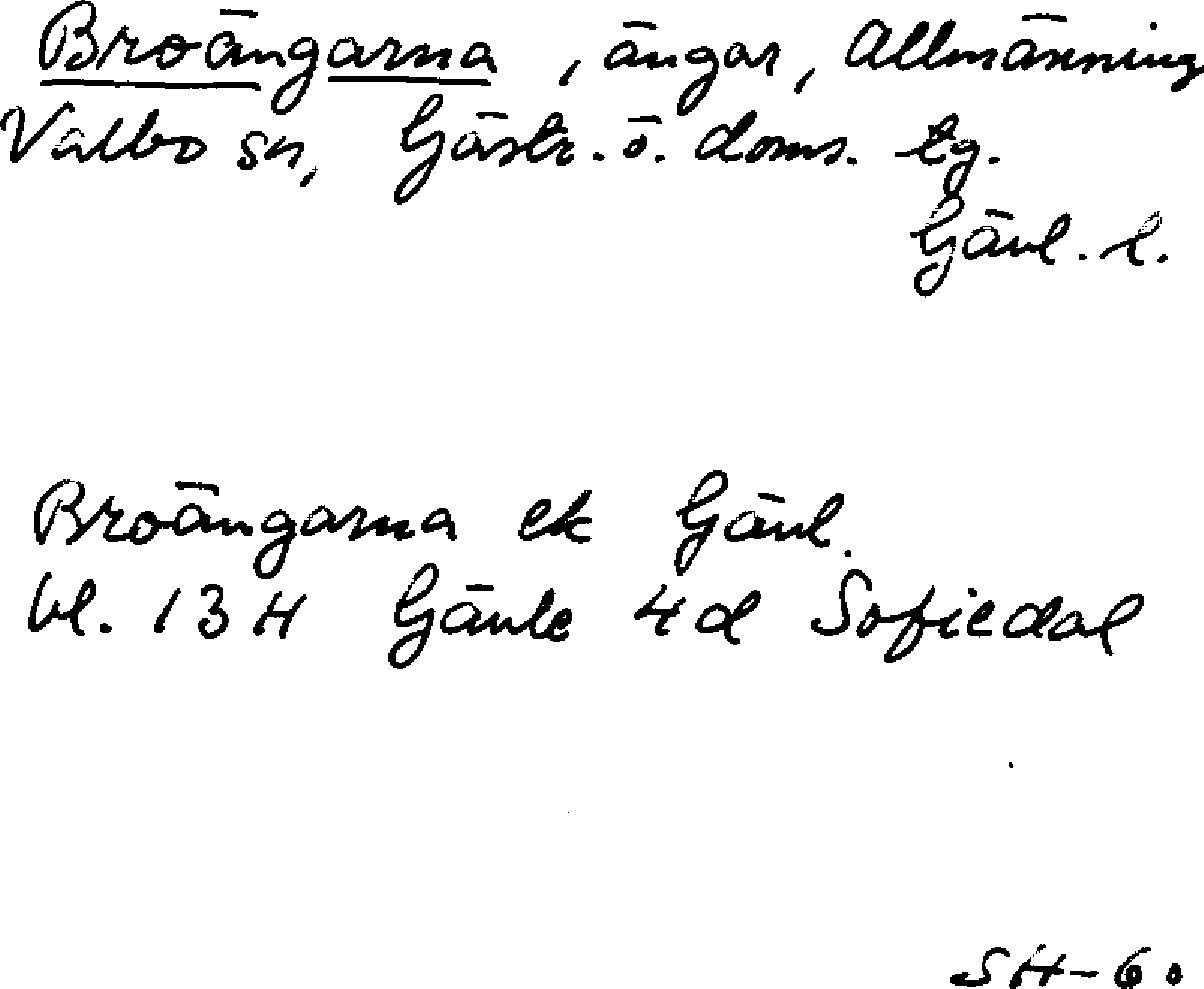 Broängarna, ängar, Allmänning
Valbo sn, Gästr. ö. doms. tg.
Gävl. l.
Broängarna ek Gävl.
bl. 13H Gävle 4d Sofiedal
SH-60